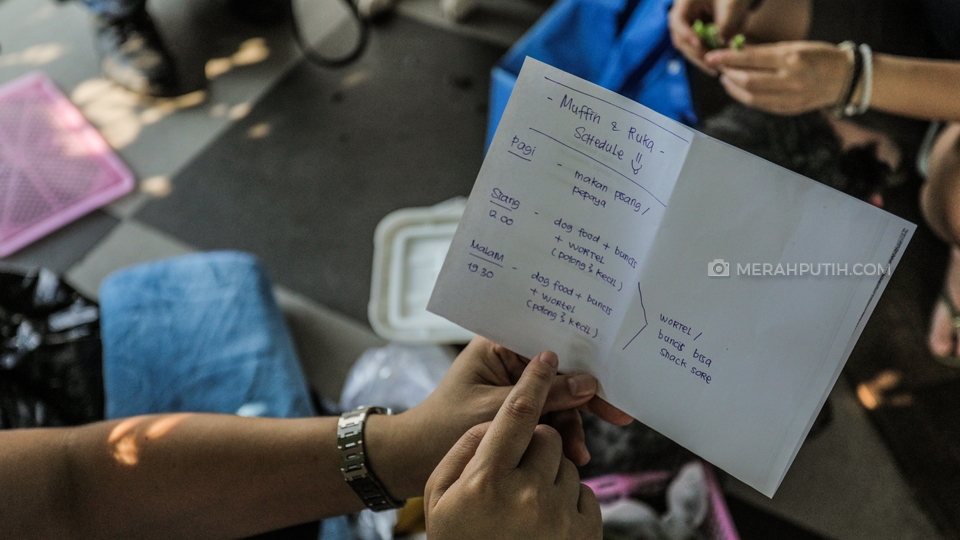 - Muffin & Ruka -
Schedule !!
Pagi - makan pisang/
pepaya
Siang
12.00 - dog food + buncis
+ WORTEL
(potong² kecil)
Malam
1930 - dog food + buncis
+ wortel
(potong² kecil)
WORTEL/
buncis bisa
snack sore
MERAHPUTIH.COM